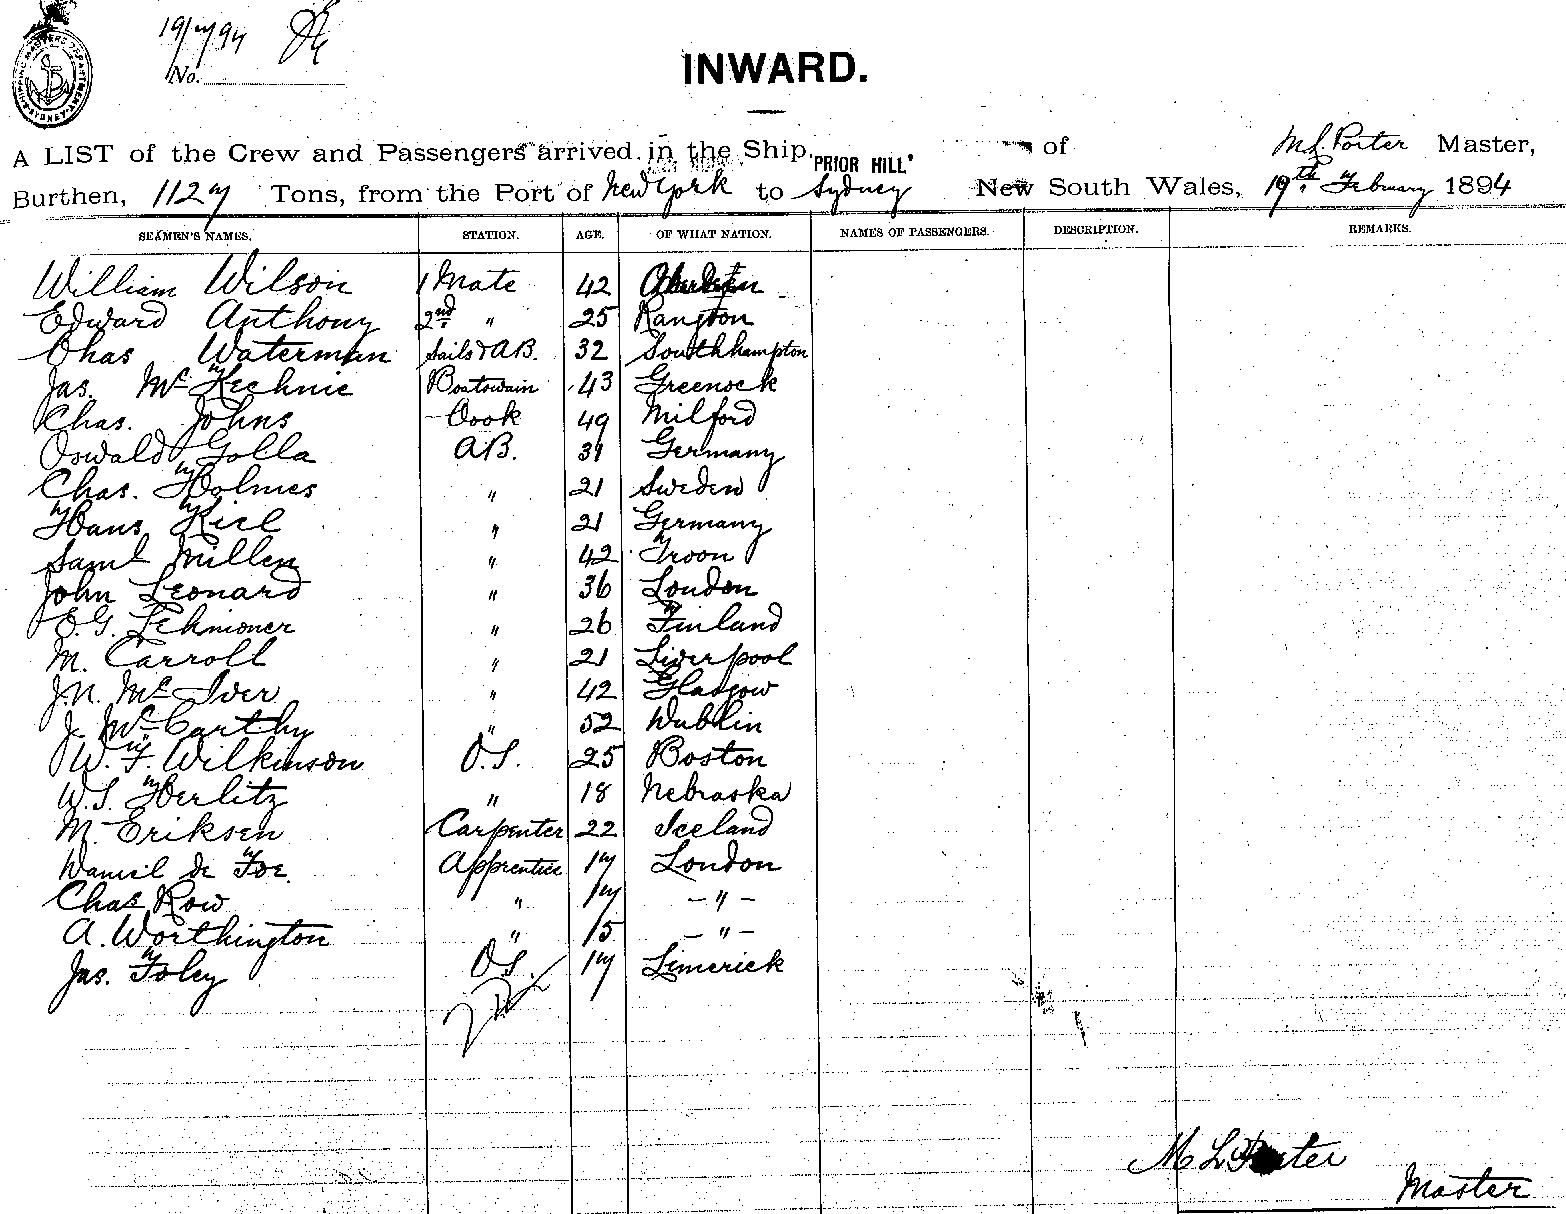 19/7/94
No.
INWARD.
SHIPPING MASTERS DEPARTMENT SYDNEY
A LIST of the Crew and Passengers arrived in the Ship "PRIOR HILL" of M L Porter Master,
Burthen, 1127 Tons, from the Port of New York to Sydney New South Wales, 19th February 1894
SEAMEN'S NAMES. STATION. AGE. OF WHAT NATION. NAMES OF PASSENGERS. DESCRIPTION. REMARKS.
William Wilson 1 Mate 42 Aberdeen
Edward Anthony 2nd " 25 Rangoon
Chas Waterman Sails & AB. 32 Southhampton
Jas. Mc Kechnie Boatswain 43 Greenock
Chas. Johns Cook 49 Milford
Oswald Golla AB. 31 Germany
Chas. Holmes " 21 Sweden
Hans Kiel " 21 Germany
Saml Millen " 42 Troon
John Leonard " 36 London
26 Finland
M. Carroll " 21 Liverpool
J.N. Mc Iver " 42 Glasgow
J. Mc Carthy " 52 Dublin
W. F. Wilkinson O.S. 25 Boston
W.S. Herlitz " 18 Nebraska
M. Eriksen Carpenter 22 Iceland
Daniel de Foe. Apprentice 17 London
Chas Row " 17 - " -
A. Worthington " 15 - " -
Jas. Foley O.S. 17 Limerick
M L Porter
Master